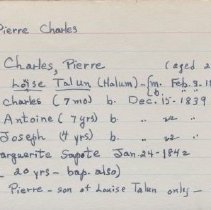 Pierre Charles
Charles, Pierre (aged 2
Loïse Talun (Halum) - (m. Feb. 3-1
Charles (7 mo) b. Dec. 15-1839
Antoine (7 yrs) b. " " "
Joseph (4 yrs) b. " " "
arguerite Sapote Jan. 24-1842
20 yrs - bap. also)
Pierre - son of Louise Talun only -